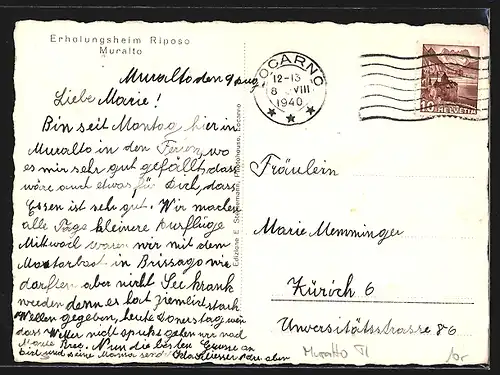 Erholungsheim Riposo
Muralto
Muralto den 9 Aug
Liebe Marie!
Bin seit Montag hier in
Muralto in den Ferien, wo
es mir sehr gut gefällt, dass
wäre auch etwas für Dich, dass
Essen ist sehr gut. Wir machen
alle Tage kleinere Ausflüge
Mittwoch waren wir mit dem
in Brissago wir
durften aber nicht See krank
werden denn es hat ziemlich stark
Wellen gegeben, heute Donerstag wen
dass Wetter nicht gehen wir nach
Monte Bre. Nun die besten Grüsse an
Dich und deine Mama
Edizione E. Locarno
LOCARNO
12-13
8.VIII
1940
10 HELVETIA
Fräulein
Marie Memminger
Zürich 6
Universitätsstrasse 86
Muralto TI